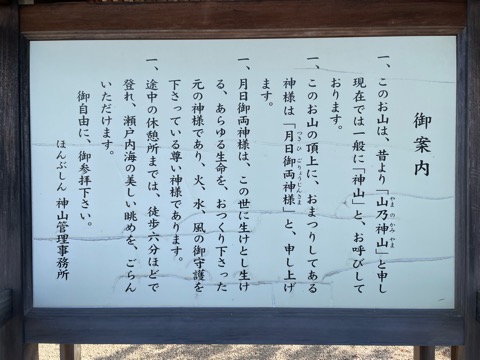 御案内
一、このお山は、昔より「山乃神山」と申し
やまのかみやま
現在では一般に「神山」と、お呼びして
おります。
一、このお山の頂上に、おまつりしてある
神様は「月日御両神様」と、申し上げ
つきひごりょうじんさま
ます。
一、月日御両神様は、この世に生けとし生け
る、あらゆる生命を、おつくり下さった
元の神様であり、火、水、風の御守護を
下さっている尊い神様であります。
一、途中の休憩所までは、徒歩六分ほどで
登れ、瀬戸内海の美しい眺めを、ごらん
いただけます。
御自由に、御参拝下さい。
ほんぶしん 神山管理事務所